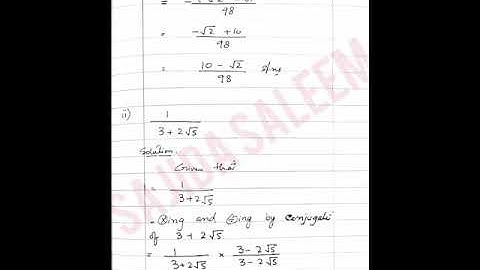 98
= -√2 + 10 / 98
= 10 - √2 / 98 Ans
ii) 1 / 3 + 2√5
Solution.
Given that
= 1 / 3 + 2√5
⊗ing and ⊕ing by conjugate
of 3 + 2√5
= 1 / 3 + 2√5 × 3 - 2√5 / 3 - 2√5
SAJIDA SALEEM